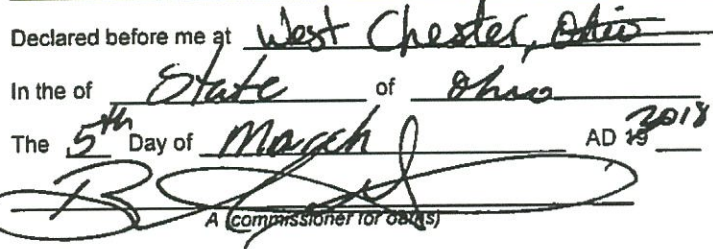 Declared before me at West Chester, Ohio
In the of State of Ohio
The 5th Day of March AD 19 2018
A (commissioner for oaths)